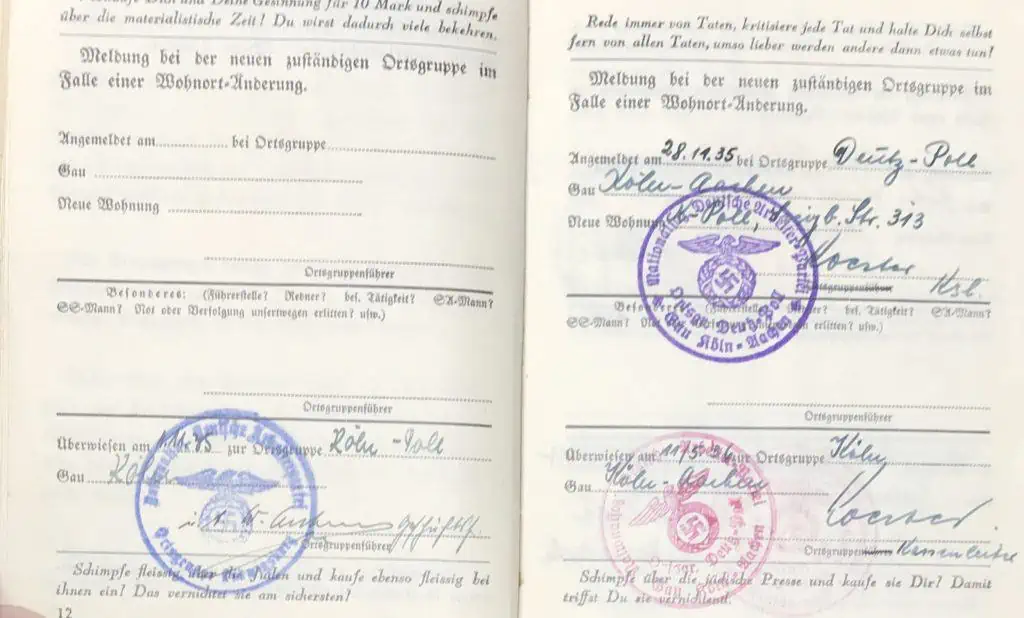 Deine Gesinnung für 10 Mark und schimpfe
über die materialistische Zeit! Du wirst dadurch viele bekehren.
Meldung bei der neuen zuständigen Ortsgruppe im
Falle einer Wohnort-Änderung.
Angemeldet am bei Ortsgruppe
Gau
Neue Wohnung
Ortsgruppenführer
Besonderes: (Führerstelle? Redner? bes. Tätigkeit? SA-Mann?
SS-Mann? Not oder Verfolgung unsertwegen erlitten? usw.)
Ortsgruppenführer
Überwiesen am 1.11.35 zur Ortsgruppe Köln-Poll
Gau
Ortsgruppenführer
Schimpfe fleissig über die Juden und kaufe ebenso fleissig bei
ihnen ein! Das vernichtet sie am sichersten?
12
Rede immer von Taten, kritisiere jede Tat und halte Dich selbst
fern von allen Taten, umso lieber werden andere dann etwas tun!
Meldung bei der neuen zuständigen Ortsgruppe im
Falle einer Wohnort-Änderung.
Angemeldet am 28.11.35 bei Ortsgruppe Deutz-Poll
Gau Köln-Aachen
Neue Wohnung K-Poll, Str. 313
Koester
Ortsgruppenführer Kzl.
Nationalsoz. Deutsche Arbeiter Partei
Ortsgr. Deutz-Poll
Gau Köln-Aachen
Besonderes: (Führerstelle? Redner? bes. Tätigkeit? SA-Mann?
SS-Mann? Not unsertwegen erlitten? usw.)
Ortsgruppenführer
Überwiesen am 11/5.36 zur Ortsgruppe Köln
Gau Köln-Aachen
Koester
Ortsgruppenführer Kassenleiter
Ortsgr. Deutz-Poll
Gau Köln-Aachen
Schimpfe über die jüdische Presse und kaufe sie Dir? Damit
triffst Du sie vernichtend.